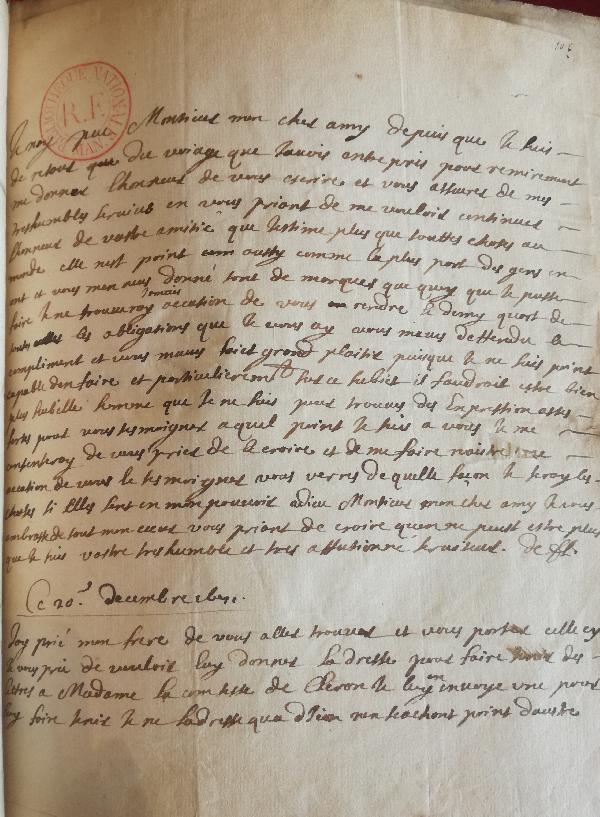 105
BIBLIOTHEQUE NATIONALE
R.F.
MAN.
Je nay peu Monsieur mon cher amy depuis que Je suis
de retour que du voiage que Javois entrepris pour remiremont
me donner lhonneur de vous escrire et vous assurer de mes
treshumbles seruices en vous priant de me vouloir continuer
lhonneur de vostre amitié que Jestime plus que touttes choses au
monde elle nest point comme la plus part des gens en
ont et vous men aues donné tant de marques que quoy que Je puisse
faire Je ne trouueray Jamais occation de vous rendre le demy quart de
les obligations que Je vous ay vous maues deffendu le
compliment et vous maues faict grand plaisir puisque Je ne suis point
capable den faire et particulierement sur ce subiet il faudroit estre bien
plus habille homme que Je ne suis pour trouuer des Expression asses
fortes pour vous tesmoigner a quel point Je suis a vous Je me
contenteray de vous prier de le croire et de me faire naistre
occation de vous le tesmoigner vous verres de quelle façon Je feray les
choses si Elles sont en mon pouuoir adieu Monsieur mon cher amy Je vous
ambrasse de tout mon coeur vous priant de croire quon ne peust estre plus
que Je suis vostre treshumble et tres affectionné seruiteur.
Ce 20.e decembre
Jay prié mon frere de vous aller trouuer et vous porter celle cy
Je vous prie de vouloir luy donner ladresse pour faire tenir des
lettres a Madame la comtesse de Cleron Je luy en envoye vne pour
luy faire tenir Je ne ladresse qua nen sachant point dautre